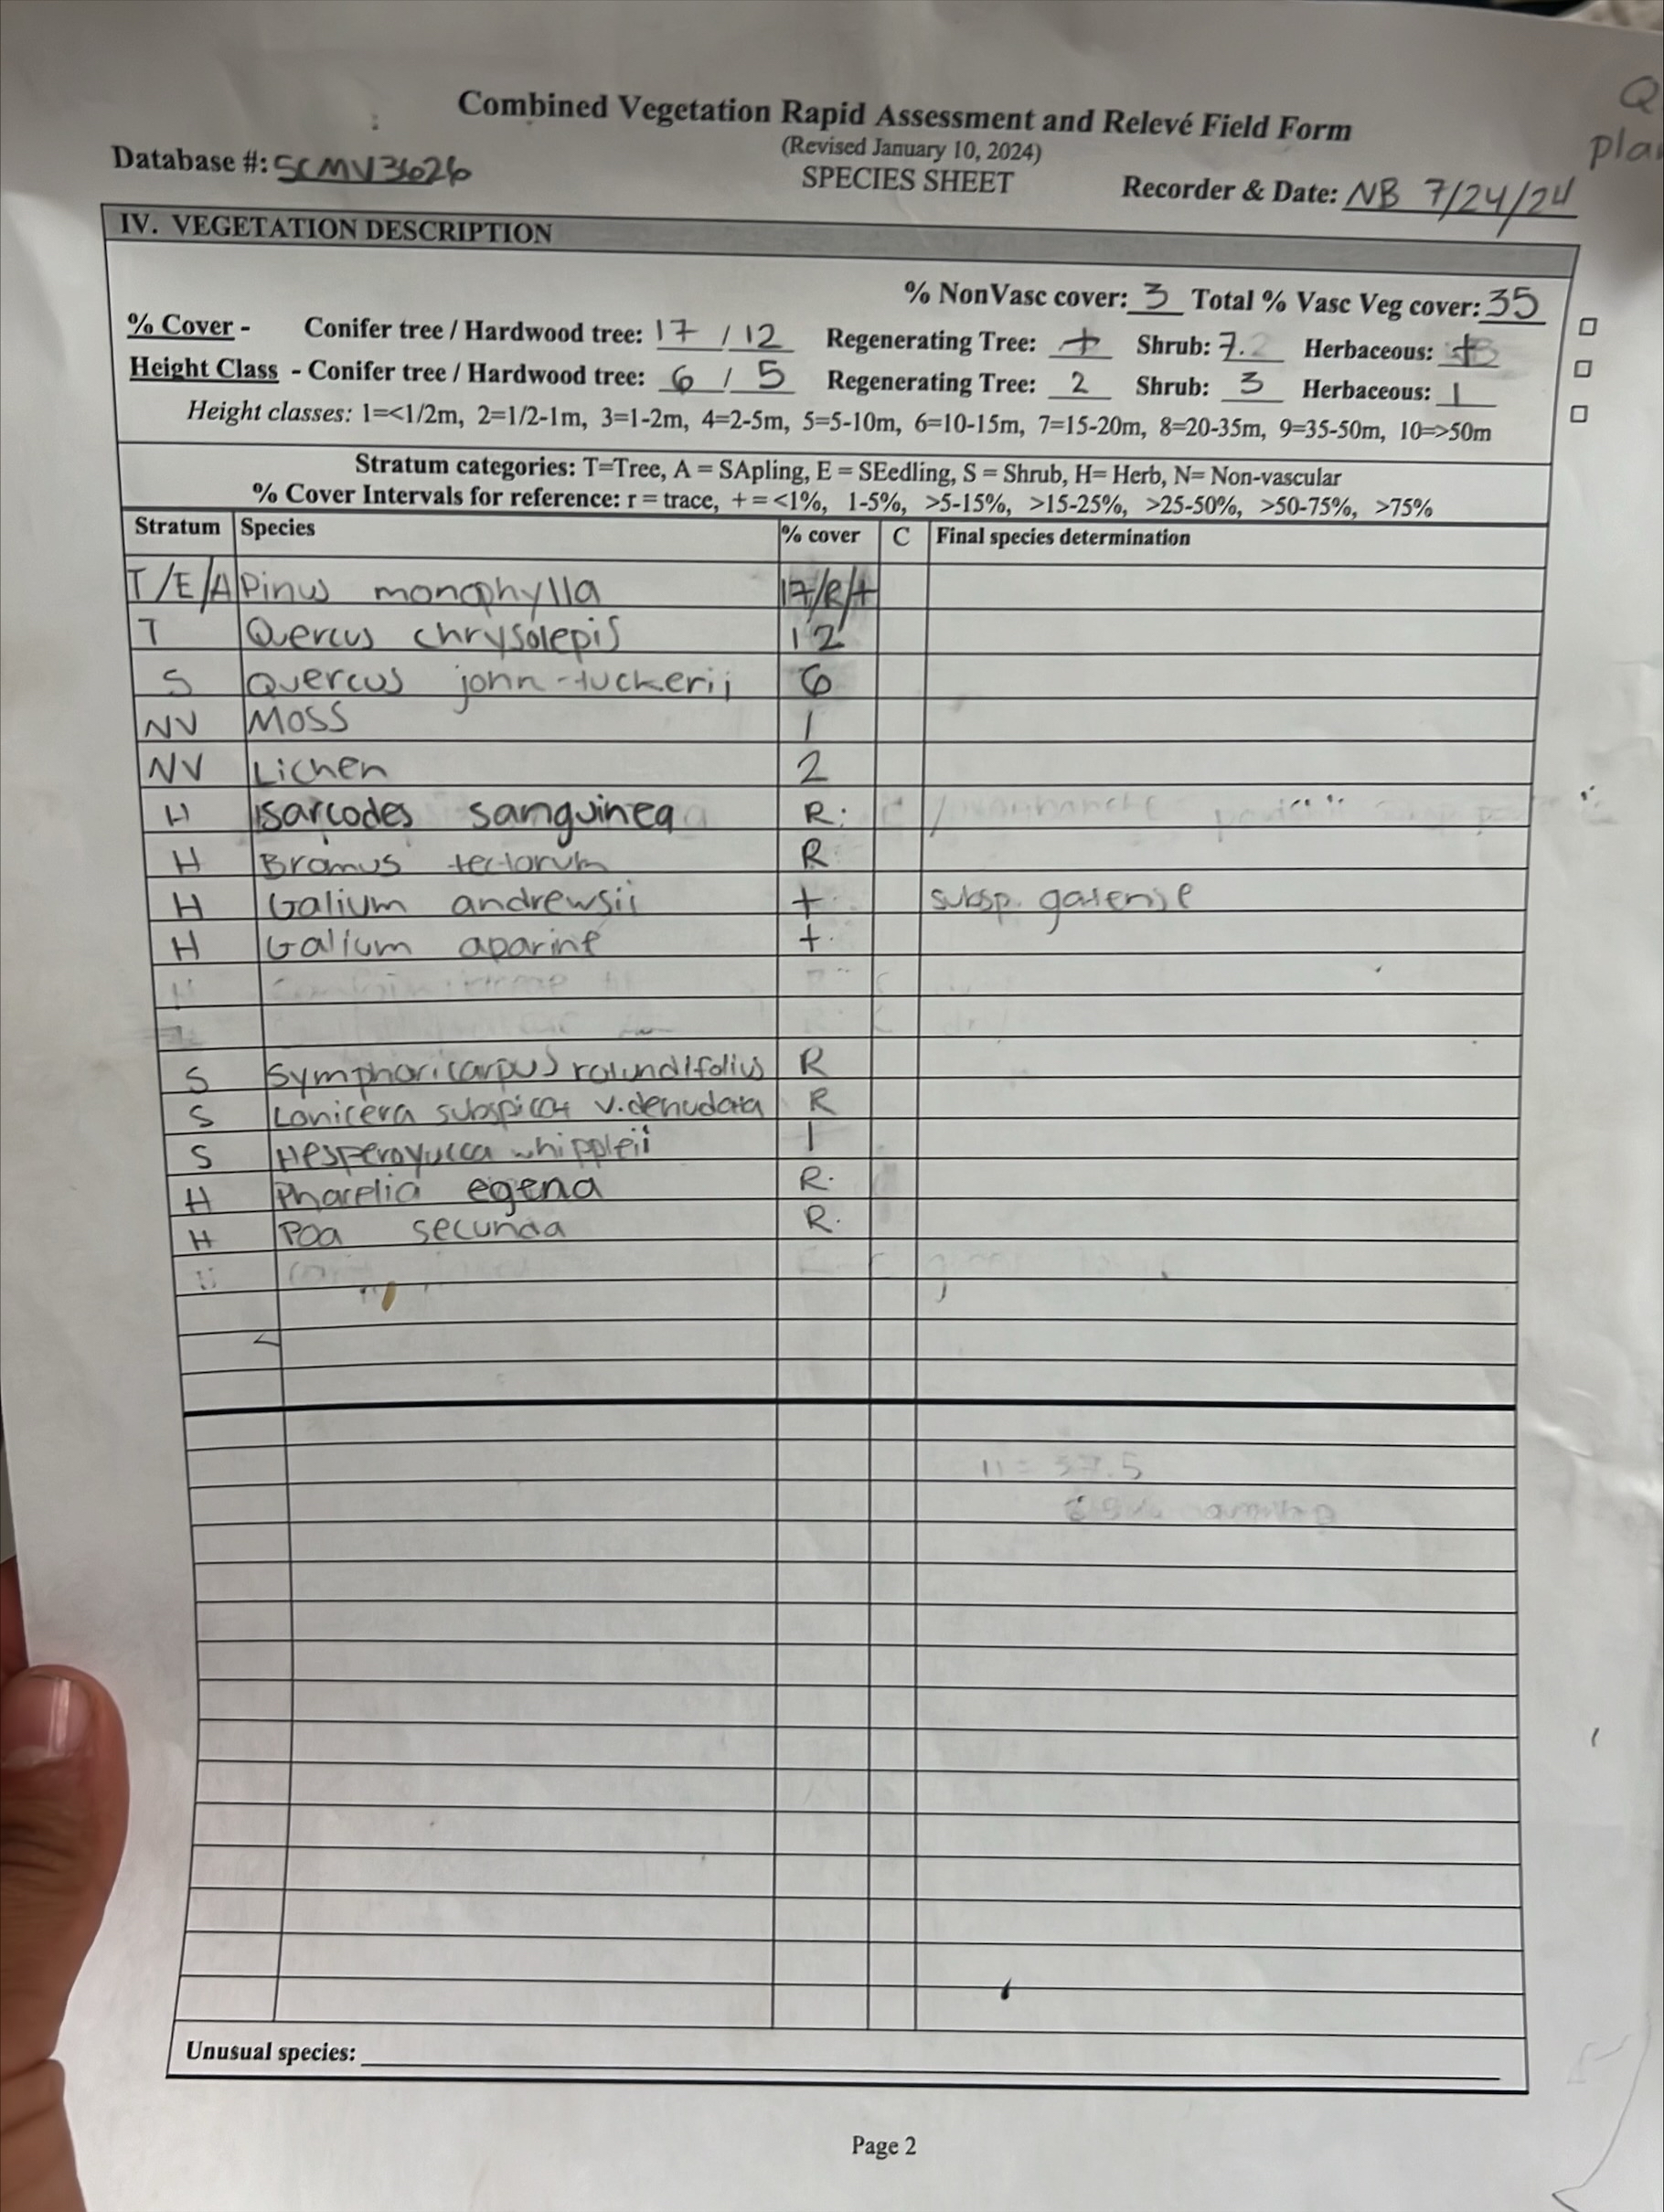 Q
pla
Combined Vegetation Rapid Assessment and Relevé Field Form
(Revised January 10, 2024)
Database #: SCMV3626 SPECIES SHEET Recorder & Date: NB 7/24/24
IV. VEGETATION DESCRIPTION
% NonVasc cover: 3 Total % Vasc Veg cover: 35
% Cover - Conifer tree / Hardwood tree: 17 / 12 Regenerating Tree: + Shrub: 7 Herbaceous: +
Height Class - Conifer tree / Hardwood tree: 6 / 5 Regenerating Tree: 2 Shrub: 3 Herbaceous: 1
Height classes: 1=<1/2m, 2=1/2-1m, 3=1-2m, 4=2-5m, 5=5-10m, 6=10-15m, 7=15-20m, 8=20-35m, 9=35-50m, 10=>50m
Stratum categories: T=Tree, A = SApling, E = SEedling, S = Shrub, H= Herb, N= Non-vascular
% Cover Intervals for reference: r = trace, + = <1%, 1-5%, >5-15%, >15-25%, >25-50%, >50-75%, >75%
Stratum Species % cover C Final species determination
T/E/A Pinus monophylla 17/R/+
T Quercus chrysolepis 12
S Quercus john-tuckerii 6
NV Moss 1
NV Lichen 2
H Sarcodes sanguinea R
H Bromus tectorum R
H Galium andrewsii + subsp. gatense
H Galium aparine +
S Symphoricarpus rotundifolius R
S Lonicera subspicat v. denudata R
S Hesperoyucca whippleii 1
H Phacelia egena R
H Poa secunda R
= 37.5
Unusual species:
Page 2